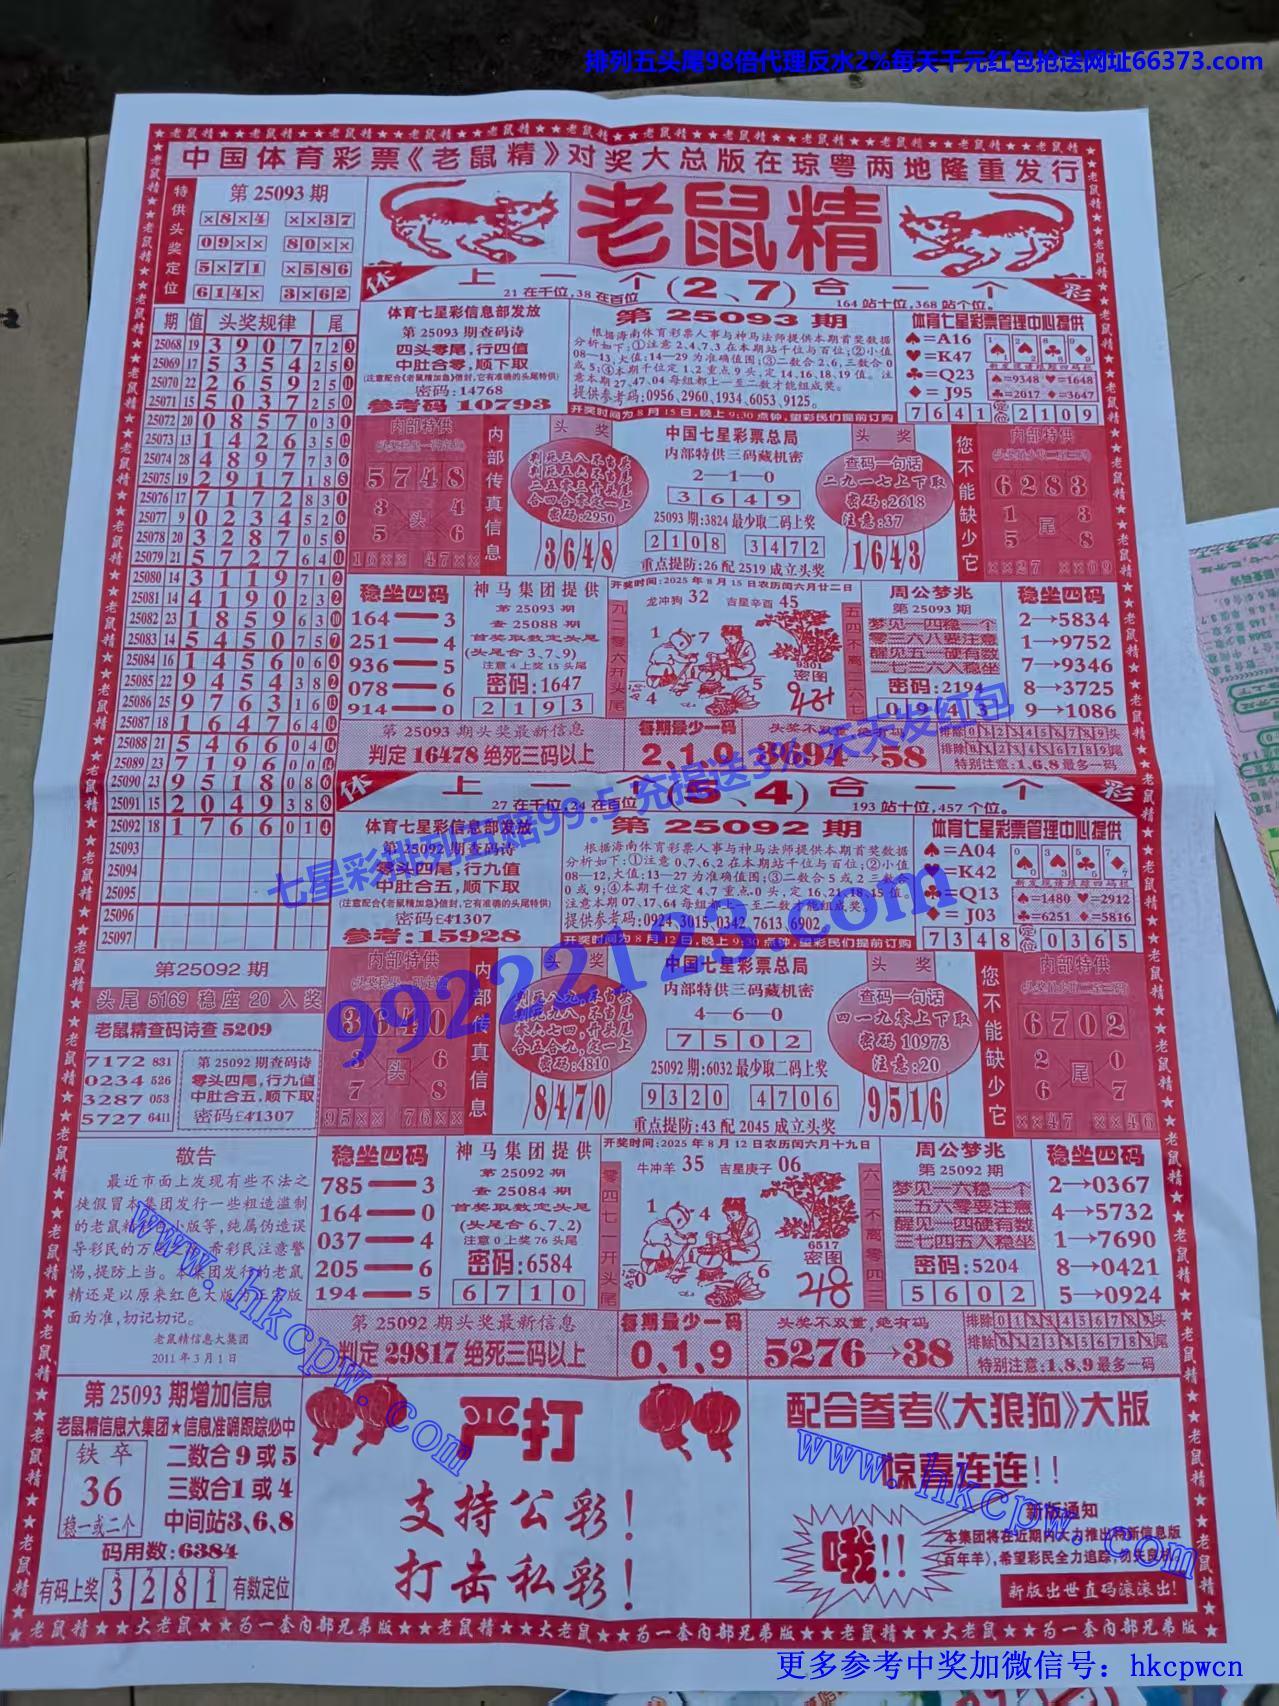 排列五头尾98倍代理反水2%每天千元红包抢送网址66373.com
中国体育彩票《老鼠精》对奖大总版在琼粤两地隆重发行
特供头奖定位
第25093期
×8×4 ××37
09×× 80××
5×71 ×586
614× 3×62
老鼠精
体 上一个(2、7)合一个 彩
21在千位,38在百位 164站十位,368站个位。
期 值 头奖规律 尾
25068 19 3907 72
25069 17 5354 25
25070 22 2659 25
25071 15 5037 25
25072 20 0857 03
25073 13 1426 35
25074 28 4897 73
25075 19 2917 18
25076 17 7172 83
25077 9 0234 52
25078 20 3287 05
25079 21 5727 64
25080 14 3119 71
25081 14 4190 23
25082 23 1859 63
25083 14 5450 75
25084 16 1456 06
25085 22 9454 38
25086 25 9763 16
25087 18 1647 64
25088 21 5466 04
25089 23 7196 00
25090 23 9518 08
25091 15 2049 38
25092 18 1766 01
25093
25094
25095
25096
25097
体育七星彩信息部发放
第25093期查码诗
四头零尾,行四值
中肚合零,顺下取
(注意配合《老鼠精加急》信封,它有准确的头尾特供)
密码:14768
参考码10793
第25093期
根据海南体育彩票人事与神马法师提供本期首奖数据
分析如下:①注意2、4、7、3在本期站千位与百位;②小值
08—13,大值:14—29为准确值围;③二数合2、6,三数合0
或5;④本期千位定1、2重点9头,定14、16、18、19值。注
意本期27、47、04每组都上一至二数才能组成奖。
提供参考码:0956、2960、1934、6053、9125。
开奖时间为8月15日,晚上9:30点钟,望彩民们提前订购
体育七星彩票管理中心提供
♠=A16
♥=K47
♣=Q23
♦=J95
新发现请跟踪四码栏
♠=9348 ♥=1648
♣=2017 ♦=3647
7641 定位 2109
内部特供
5748
3 4
头
5 6
16×× 47××
内部传真信息
头奖
密码:2950
3648
中国七星彩票总局
内部特供三码藏机密
2—1—0
3649
25093期:3824最少取二码上奖
2108 3472
重点提防:26配2519成立头奖
头奖
查码一句话
二九一七上下取
密码:2618
注意:37
1643
您不能缺少它
内部特供
6283
1 3
尾
5 8
××27 ××09
稳坐四码
164—3
251—4
936—5
078—6
914—0
神马集团提供
第25093期
查25088期
首奖取数定头尾
(头尾合3、7、9)
注意4上奖15头尾
密码:1647
2193
开奖时间:2025年8月15日农历闰六月廿二日
九二零六开头尾
龙冲狗32 吉星辛酉45
9301
密图
五四不离二六七
周公梦兆
第25093期
梦见一四稳一个
零三六八要注意
醒见五一硬有数
二七三六入稳坐
密码:2194
0943
稳坐四码
2→5834
1→9752
7→9346
8→3725
9→1086
第25093期头奖最新信息
判定16478绝死三码以上
每期最少一码
2、1、0
头奖不双重,绝有码
3694→58
排除0123456789头
排除0123456789尾
特别注意:1、6、8最多一码
七星彩排列五赔99.5 充提送3% 天天发红包
99222123.com
体 上一个(5、4)合一个 彩
27在千位,24在百位 193站十位,457个位。
体育七星彩信息部发放
第25092期查码诗
零头四尾,行九值
中肚合五,顺下取
(注意配合《老鼠精加急》信封,它有准确的头尾特供)
密码£41307
参考:15928
第25092期
根据海南体育彩票人事与神马法师提供本期首奖数据
分析如下:①注意0、7、6、2在本期站千位与百位;②小值
08—12,大值:13—27为准确值围;③二数合5或2三数合
0或9;④本期千位定4、7重点0头,定16、21、18、15值。
注意本期07、17、64每组都上一至二数才能组成奖。
提供参考码:0924、3015、0342、7613、6902。
开奖时间为8月12日,晚上9:30点钟,望彩民们提前订购
体育七星彩票管理中心提供
♠=A04
♥=K42
♣=Q13
♦=J03
新发现请跟踪四码栏
♠=1480 ♥=2912
♣=6251 ♦=5816
7348 定位 0365
第25092期
头尾5169稳座20入奖
老鼠精查码诗查5209
7172 831
0234 526
3287 053
5727 6411
第25092期查码诗
零头四尾,行九值
中肚合五,顺下取
密码£41307
内部特供
3640
3 6
头
7 8
95×× 76××
内部传真信息
头奖
密码:4810
8470
中国七星彩票总局
内部特供三码藏机密
4—6—0
7502
25092期:6032最少取二码上奖
9320 4706
重点提防:43配2045成立头奖
头奖
查码一句话
四一九零上下取
密码10973
注意:20
9516
您不能缺少它
内部特供
6702
2 0
尾
6 7
××47 ××46
敬告
最近市面上发现有些不法之
徒假冒本集团发行一些粗造滥制
的老鼠精小版等,纯属伪造误
导彩民的万希彩民注意警
惕,提防上当。本集团发行的老鼠
精还是以原来红色大版为正常版
面为准,切记切记。
老鼠精信息大集团
2011年3月1日
稳坐四码
785—3
164—0
037—4
205—6
194—5
神马集团提供
第25092期
查25084期
首奖取数定头尾
(头尾合6、7、2)
注意0上奖76头尾
密码:6584
6710
开奖时间:2025年8月12日农历闰六月十九日
零四七一开头尾
牛冲羊35 吉星庚子06
6517
密图
248
六二不离零四三
周公梦兆
第25092期
梦见一六稳一个
二五六零要注意
醒见一四硬有数
三七四五入稳坐
密码:5204
5602
稳坐四码
2→0367
4→5732
1→7690
8→0421
5→0924
第25092期头奖最新信息
判定29817绝死三码以上
每期最少一码
0、1、9
头奖不双重,绝有码
5276→38
排除0123456789头
排除0123456789尾
特别注意:1、8、9最多一码
第25093期增加信息
老鼠精信息大集团★信息准确跟踪必中
铁卒
36
稳一或二个
二数合9或5
三数合1或4
中间站3、6、8
码用数:6384
有码上奖 3281 有数定位
严打
支持公彩!
打击私彩!
配合参考《大狼狗》大版
惊喜连连!!
哦!!
新版通知
本集团将在近期内大力推出特新信息版
《百年羊》,希望彩民全力追踪,勿失良机
新版出世直码滚滚出!
www.hkcpw.com
www.hkcpw.com
★老鼠精★★大老鼠★★为一套内部兄弟版★★老鼠精★★大老鼠★★为一套内部兄弟版★★老鼠精★★大老鼠★★为一套内部兄弟版★★老鼠精★
更多参考中奖加微信号:hkcpwcn